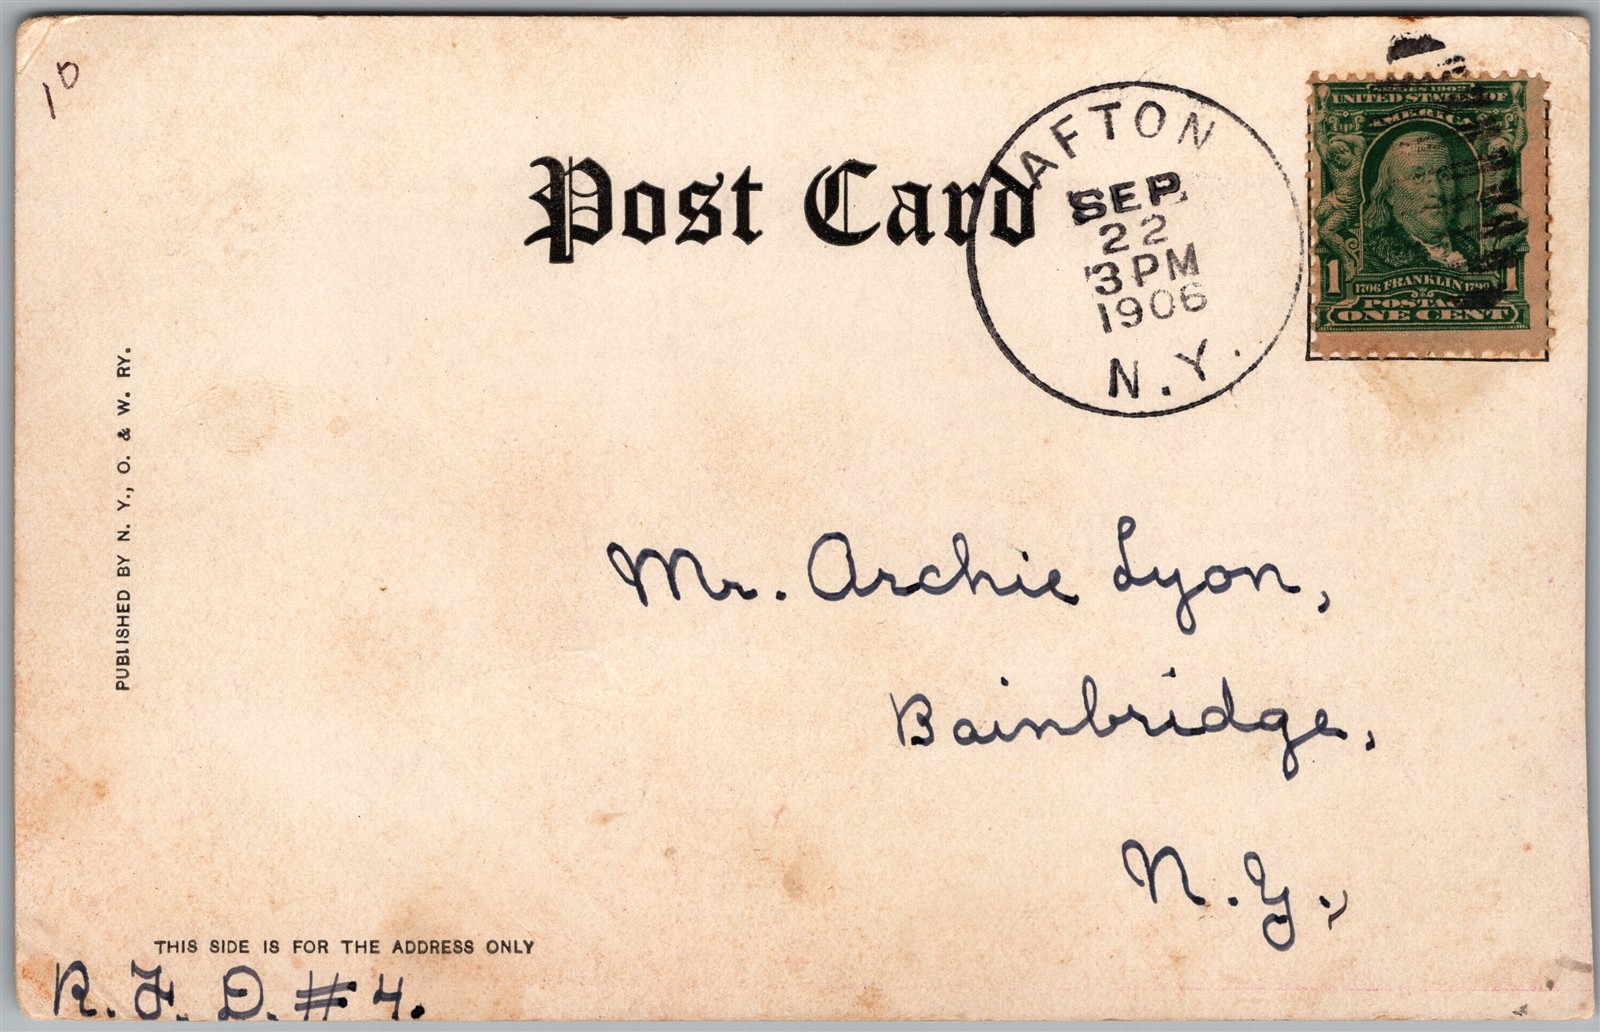 10
Post Card
AFTON
SEP.
22
3 PM
1906
N.Y.
SERIES 1902
UNITED STATES OF
AMERICA
1 1
1706 FRANKLIN 1790
POSTAGE
ONE CENT
PUBLISHED BY N. Y., O. & W. RY.
Mr. Archie Lyon,
Bainbridge,
N.Y.,
THIS SIDE IS FOR THE ADDRESS ONLY
R.F.D. #4.